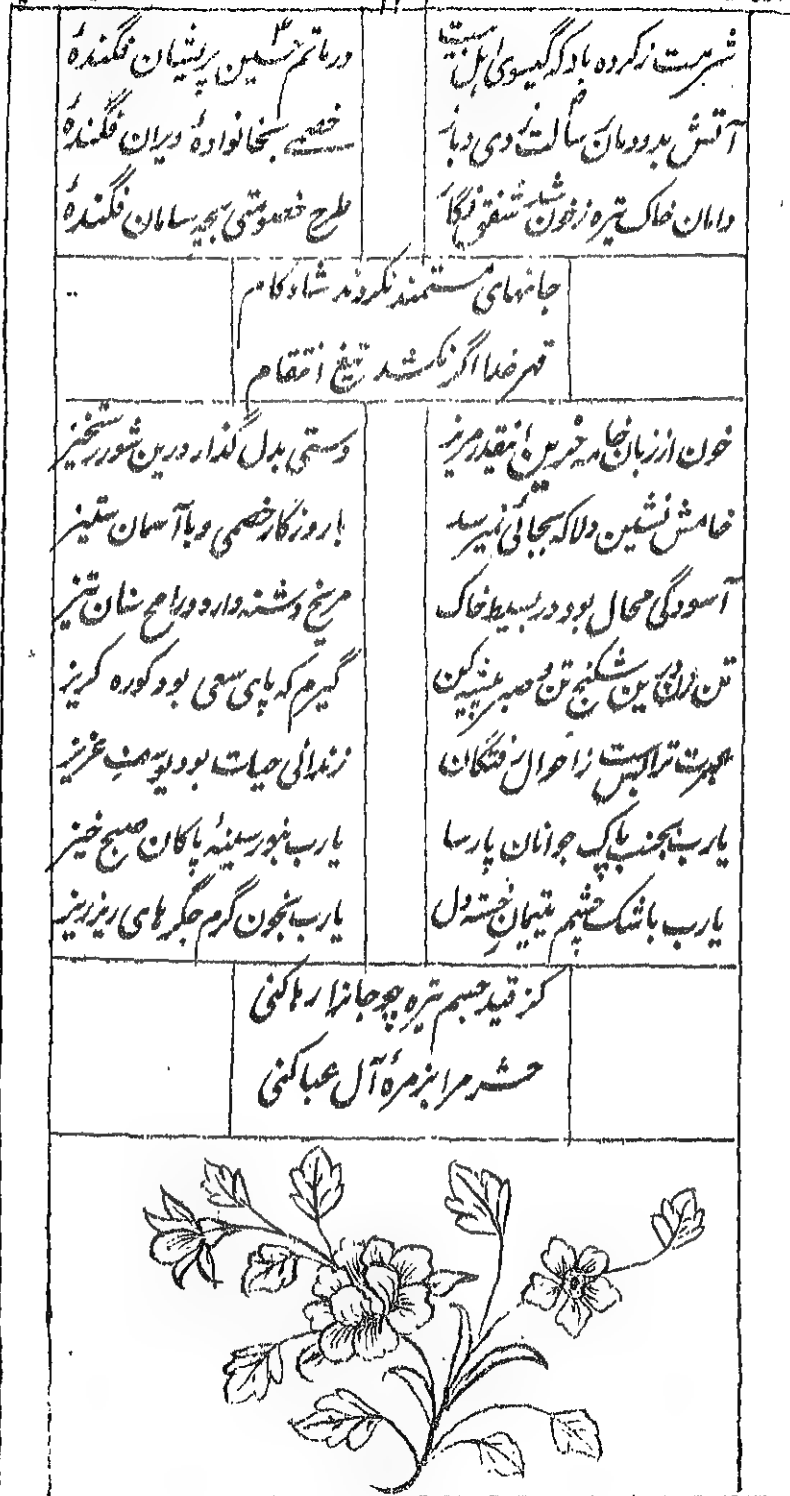 شرمت ز کرده باد که گیسوی اہل بیت در ماتم حسین پریشان فگندۂ
آتش بدودمان رسالت زدی و باز خصمے بخانوادۂ ویران فگندۂ
دامان خاک تیره ز خون شد شفق نگار طرح خصومتی بچه سامان فگندۂ
جانهای مستمند نگردند شادکام
قهر خدا اگر نکشد تیغ انتقام
خون از زبان خامه حزین اینقدر مریز دستی بدل گذار درین شور رستخیز
خامش نشین دلا که بجائی نمیرسد با روزگار خصمی و با آسمان ستیز
آسودگی محال بود در بسیط خاک مریخ دشنه دارد و رامح سنان تیز
تن را درین شکنج تن و صبر پیشه کن گیرم که پای سعی بود کو ره گریز
عبرت ترا بس است ز احوال رفتگان زندانی حیات بود یوسف عزیز
یارب بجنب پاک جوانان پارسا یارب بنور سینۂ پاکان صبح خیز
یارب باشک چشم یتیمان خسته دل یارب بخون گرم جگرهای ریز ریز
کز قید جسم تیره چو جانرا رها کنی
حشر مرا بزمرۂ آل عبا کنی